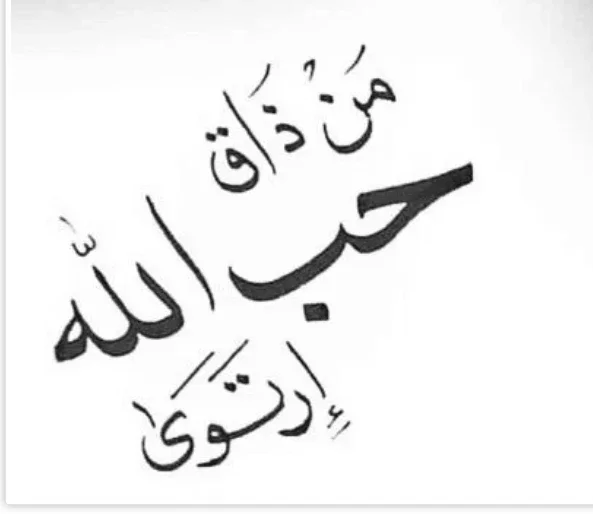 مَنْ ذَاق
حب اللّه
إرتَوَىَ